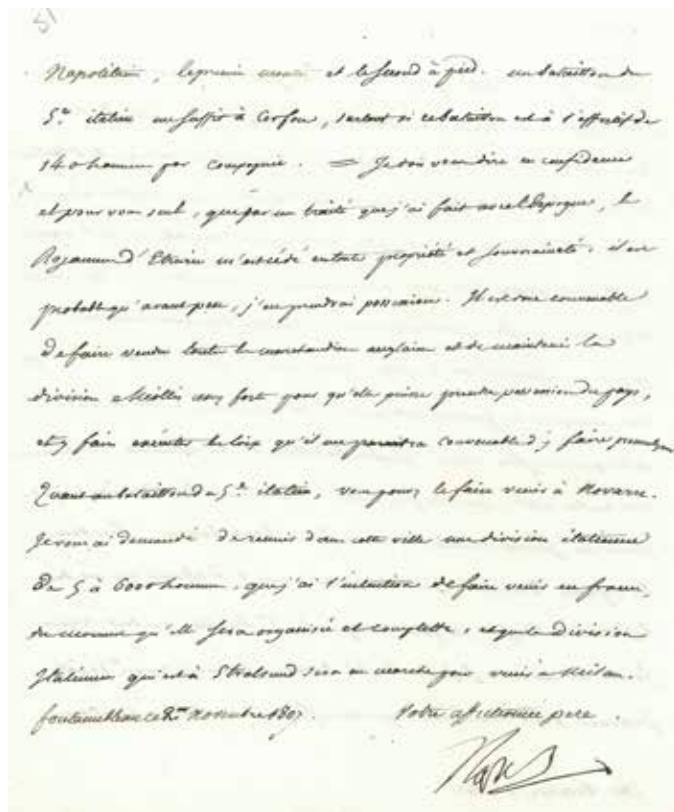 51
Napolitain, le premier monté et le second à pied. un bataillon du
5.e italien me suffit à Corfou, surtout si ce bataillon est à l'effectif de
140 hommes par compagnie. = Je dois vous dire en confidence
et pour vous seul, que par un traité que j'ai fait avec l'Espagne, le
Royaume d'Etrurie m'est cédé en toute propriété et souveraineté. il est
probable qu'avant peu, j'en prendrai possession. Il est donc convenable
de faire vendre toutes les marchandises anglaises et de maintenir la
division Miollis assez forte pour qu'elle puisse prendre possession du pays,
et y faire exécuter les loix qu'il me paraitra convenable d'y faire
Quant au bataillon du 5.e italien, vous pouvez le faire venir à Novarre.
Je vous ai demandé de réunir dans cette ville une division italienne
de 5 à 6000 hommes, que j'ai l'intention de faire venir en france,
du moment qu'elle sera organisée et complette, et que la division
Italienne qui est à Stralsund sera en marche pour venir à Milan.
fontainebleau ce novembre 1807. Votre affectionné père.
Nap